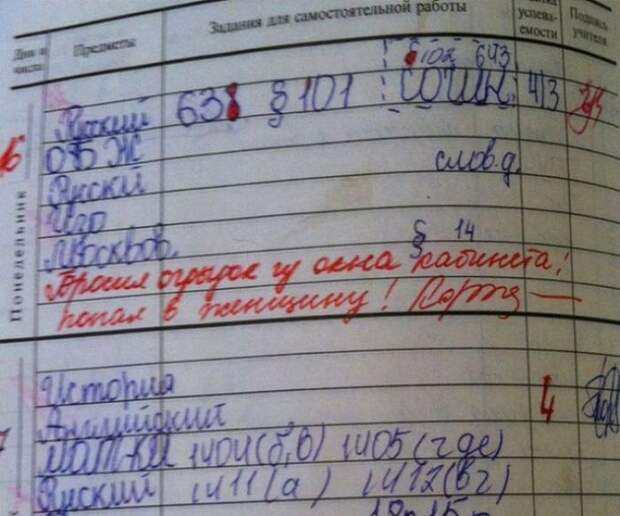 Дни и числа
Предметы
Задания для самостоятельной работы
успева-
емости
Подпись
учителя
§102 643
16
Понедельник
Русский 638 §101 СОЧИН 4/3
ОБЖ
Русский слов.д.
Изо
Москвов. § 14
Бросил огрызок из окна кабинета!
попал в женщину!
История
Английский 4
МАТ-КА 1404(б,в) 1405(где)
Русский 1411(а) 1412(вг)